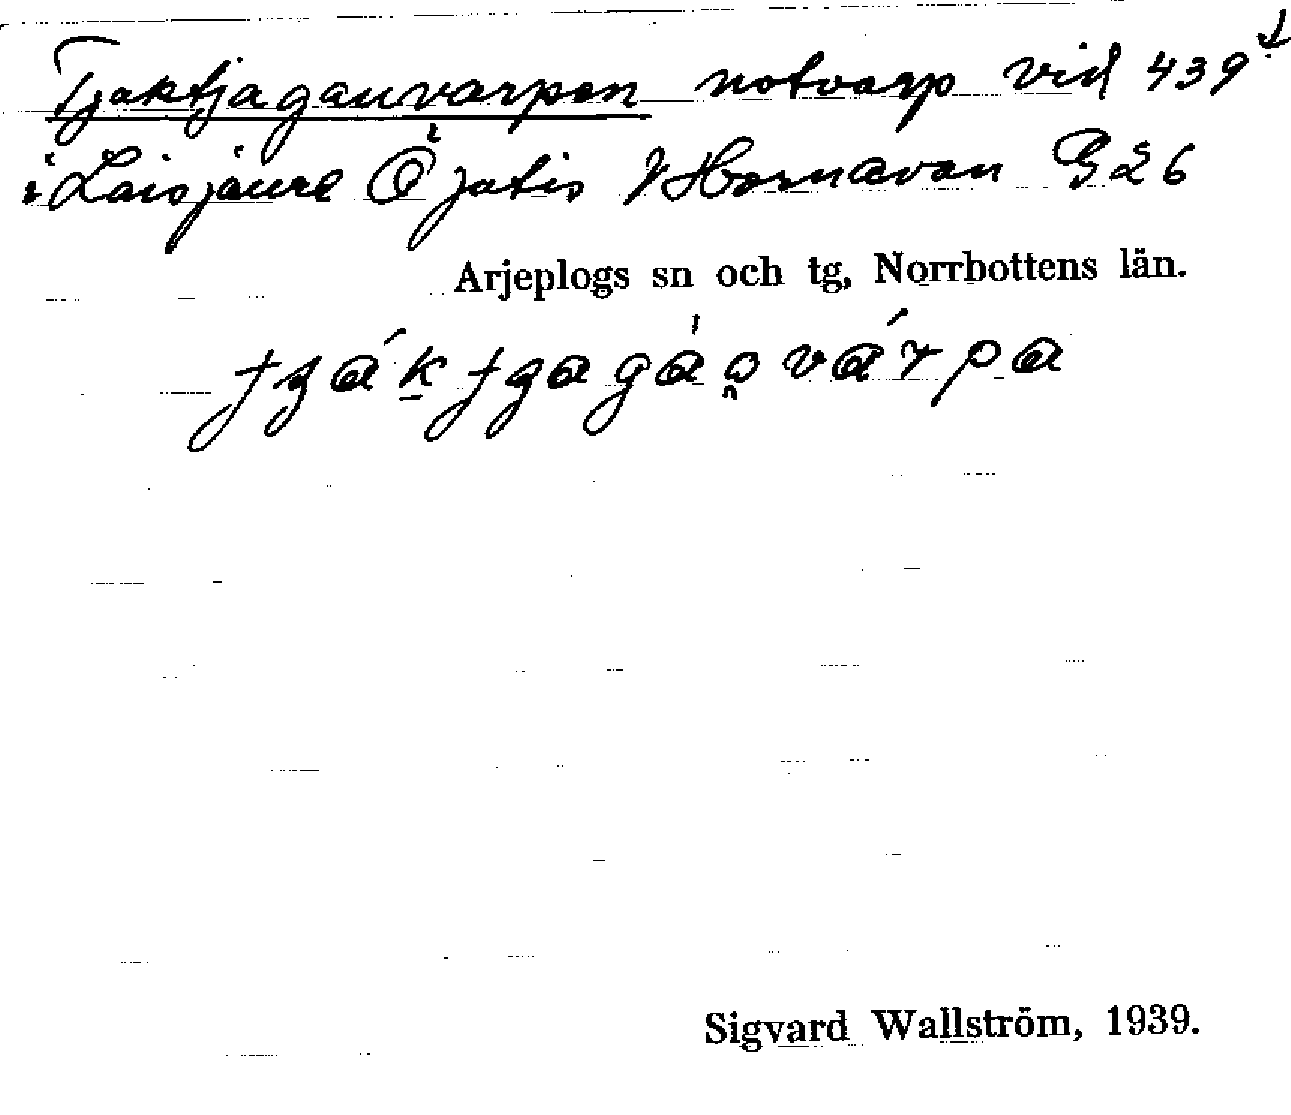 Tjaktjaganvarpen notvarp vid 439 ↓
i Laisjaure Ö Jutis V Hornavan G 26
Arjeplogs sn och tg, Norrbottens län.
Sigvard Wallström, 1939.